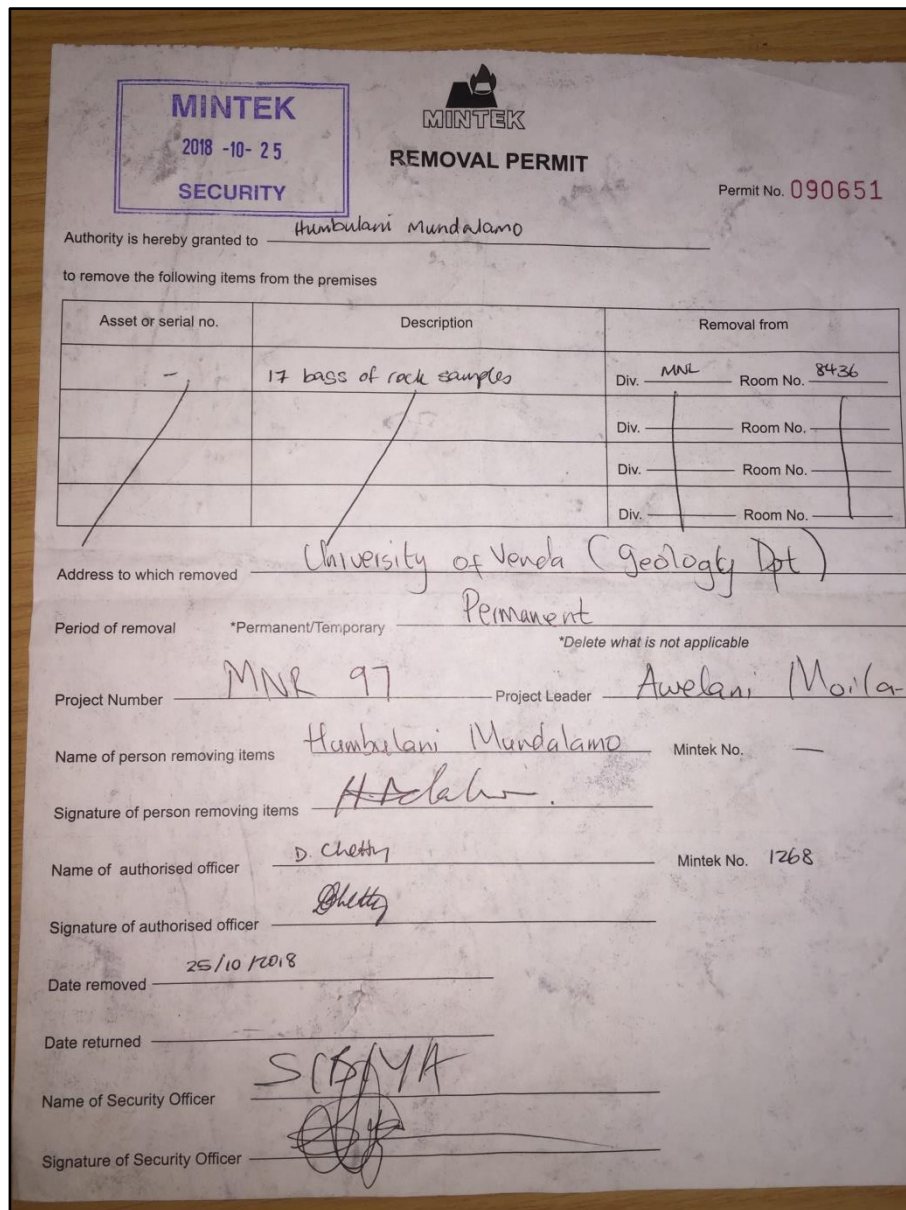 MINTEK
2018 -10- 25
SECURITY
MINTEK
REMOVAL PERMIT
Permit No. 090651
Authority is hereby granted to Humbulani Mundalamo
to remove the following items from the premises
Asset or serial no. Description Removal from
- 17 bags of rock samples Div. MNL Room No. 8436
Div. Room No.
Div. Room No.
Div. Room No.
Address to which removed University of Venda (Geology Dpt)
Period of removal *Permanent/Temporary Permanent
*Delete what is not applicable
Project Number MNR 97 Project Leader Awelani Moila-
Name of person removing items Humbulani Mundalamo Mintek No. —
Signature of person removing items
Name of authorised officer D. Chetty Mintek No. 1268
Signature of authorised officer Chetty
Date removed 25/10/2018
Date returned
Name of Security Officer SIBIYA
Signature of Security Officer